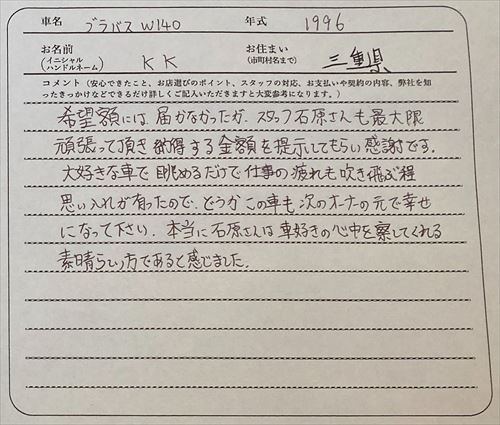 車名 ブラバス W140 年式 1996
お名前 (イニシャル ハンドルネーム) KK お住まい (市町村名まで) 三重県
コメント(安心できたこと、お店選びのポイント、スタッフの対応、お支払いや契約の内容、弊社を知
ったきっかけなどできるだけ詳しくご記入いただきますと大変参考になります。)
希望額には届かなかったが、スタッフ石原さんも最大限
頑張って頂き納得する金額を提示してもらい感謝です。
大好きな車で眺めるだけで仕事の疲れも吹き飛ぶ程
思い入れが有ったので、どうかこの車も次のオーナーの元で幸せ
になって下さい。本当に石原さんは車好きの心中を察してくれる
素晴らしい方であると感じました。